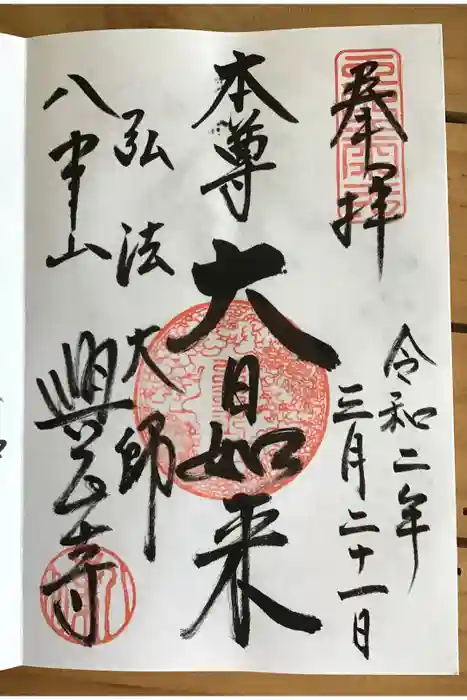 奉拝
令和二年
三月二十一日
本尊
大日如来
弘法大師
八事山
興正寺